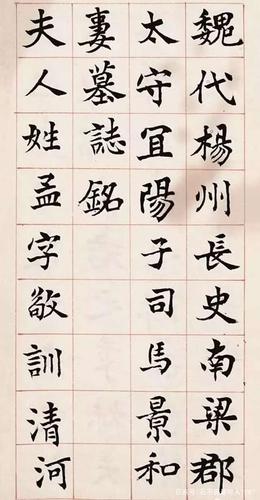 魏代楊州長史南梁郡
太守宜陽子司馬景和
妻墓誌銘
夫人姓孟字敬訓清河